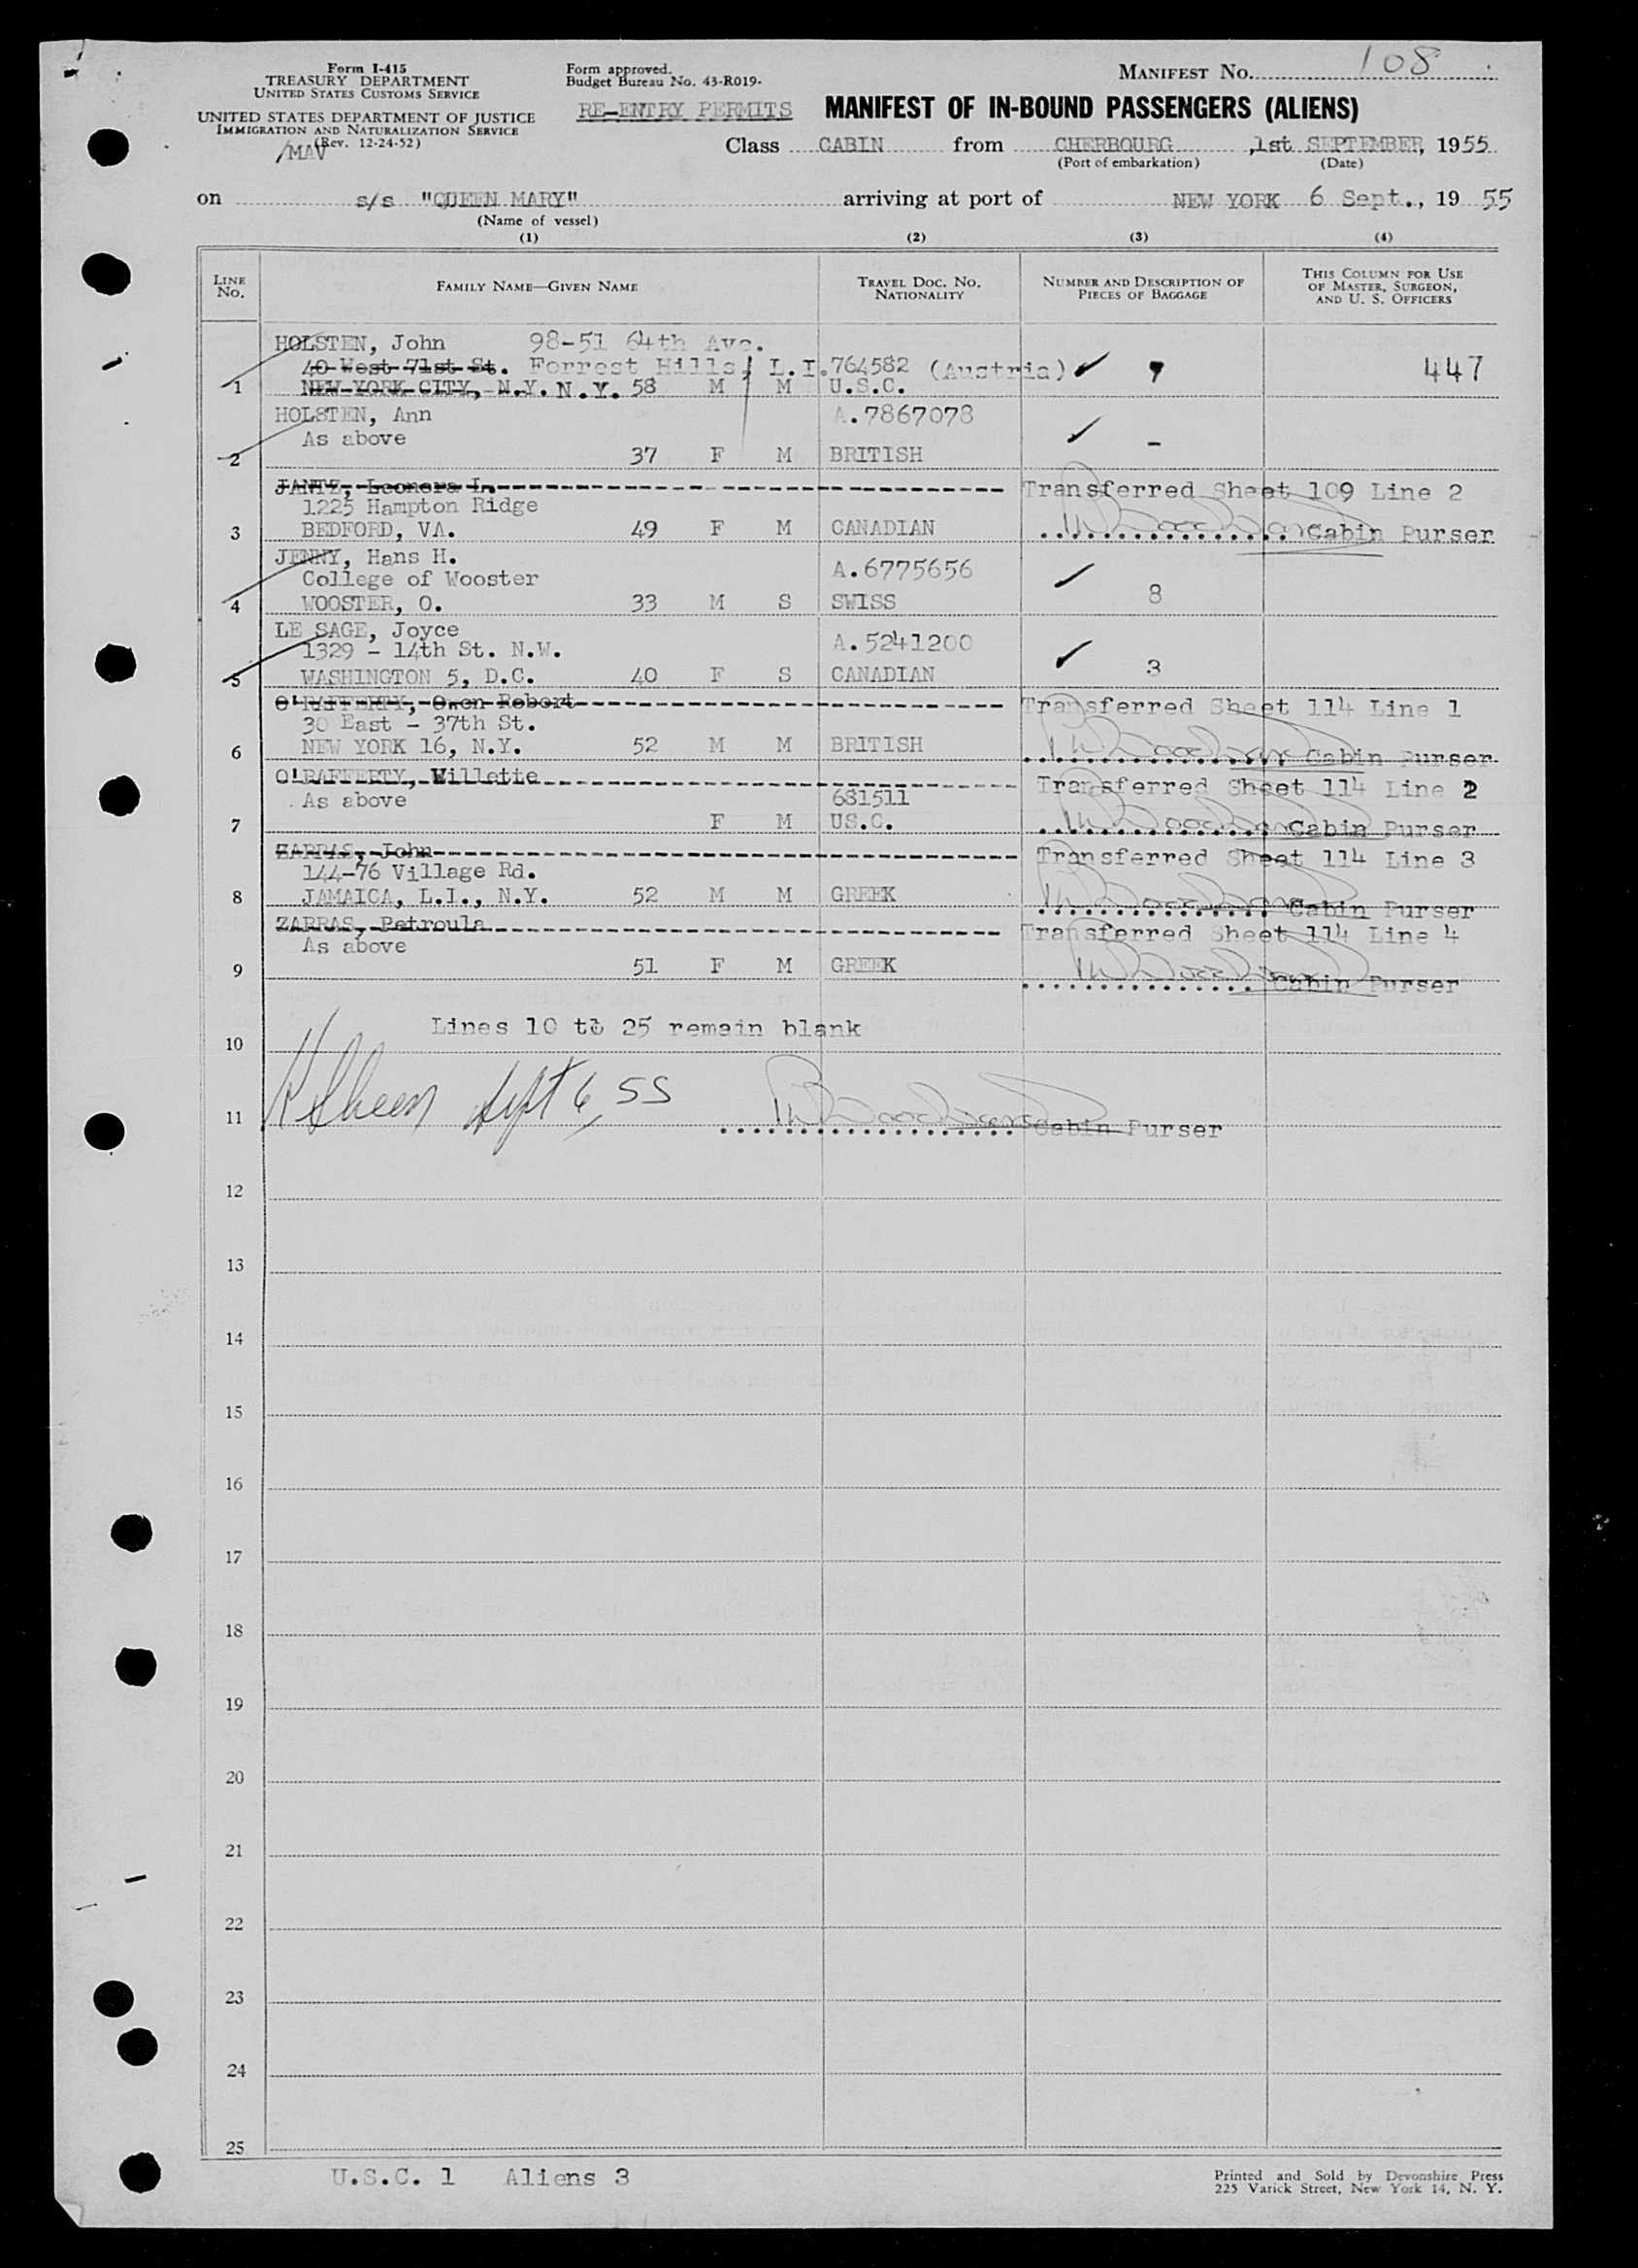 Form I-415
TREASURY DEPARTMENT
UNITED STATES CUSTOMS SERVICE
UNITED STATES DEPARTMENT OF JUSTICE
IMMIGRATION AND NATURALIZATION SERVICE
(Rev. 12-24-52)
/MAV
Form approved.
Budget Bureau No. 43-R019.
RE-ENTRY PERMITS
MANIFEST NO. 108
MANIFEST OF IN-BOUND PASSENGERS (ALIENS)
Class CABIN from CHERBOURG, 1st SEPTEMBER, 1955
(Port of embarkation) (Date)
on s/s "QUEEN MARY" arriving at port of NEW YORK 6 Sept., 19 55
(Name of vessel)
(1) (2) (3) (4)
LINE NO.
FAMILY NAME—GIVEN NAME
TRAVEL DOC. NO. NATIONALITY
NUMBER AND DESCRIPTION OF PIECES OF BAGGAGE
THIS COLUMN FOR USE OF MASTER, SURGEON, AND U. S. OFFICERS
HOLSTEN, John 98-51 64th Ave.
40 West 71st St. Forrest Hills, L.I. 764582 (Austria) 447
1 NEW YORK CITY, N.Y. N.Y. 58 M M U.S.C.
HOLSTEN, Ann A.7867078
As above -
2 37 F M BRITISH
JANTZ, Leonora L. Transferred Sheet 109 Line 2
1225 Hampton Ridge
3 BEDFORD, VA. 49 F M CANADIAN Cabin Purser
JENNY, Hans H.
College of Wooster A.6775656
4 WOOSTER, O. 33 M S SWISS 8
LE SAGE, Joyce
1329 - 14th St. N.W. A.5241200
5 WASHINGTON 5, D.C. 40 F S CANADIAN 3
O'RAFFERTY, Owen Robert Transferred Sheet 114 Line 1
30 East - 37th St.
6 NEW YORK 16, N.Y. 52 M M BRITISH Cabin Purser
O'RAFFERTY, Willette Transferred Sheet 114 Line 2
As above 681511
7 F M US.C. Cabin Purser
ZARRAS, John Transferred Sheet 114 Line 3
144-76 Village Rd.
8 JAMAICA, L.I., N.Y. 52 M M GREEK Cabin Purser
ZARRAS, Petroula Transferred Sheet 114 Line 4
As above
9 51 F M GREEK Cabin Purser
Lines 10 to 25 remain blank
10
Sept 6, 55
11 Cabin Purser
12
13
14
15
16
17
18
19
20
21
22
23
24
25
U.S.C. 1 Aliens 3
Printed and Sold by Devonshire Press
225 Varick Street, New York 14, N. Y.